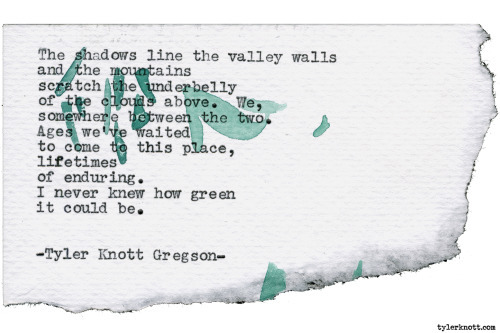 The shadows line the valley walls
and the mountains
scratch the underbelly
of the clouds above. We,
somewhere between the two.
Ages we've waited
to come to this place,
lifetimes
of enduring.
I never knew how green
it could be.
-Tyler Knott Gregson-
tylerknott.com